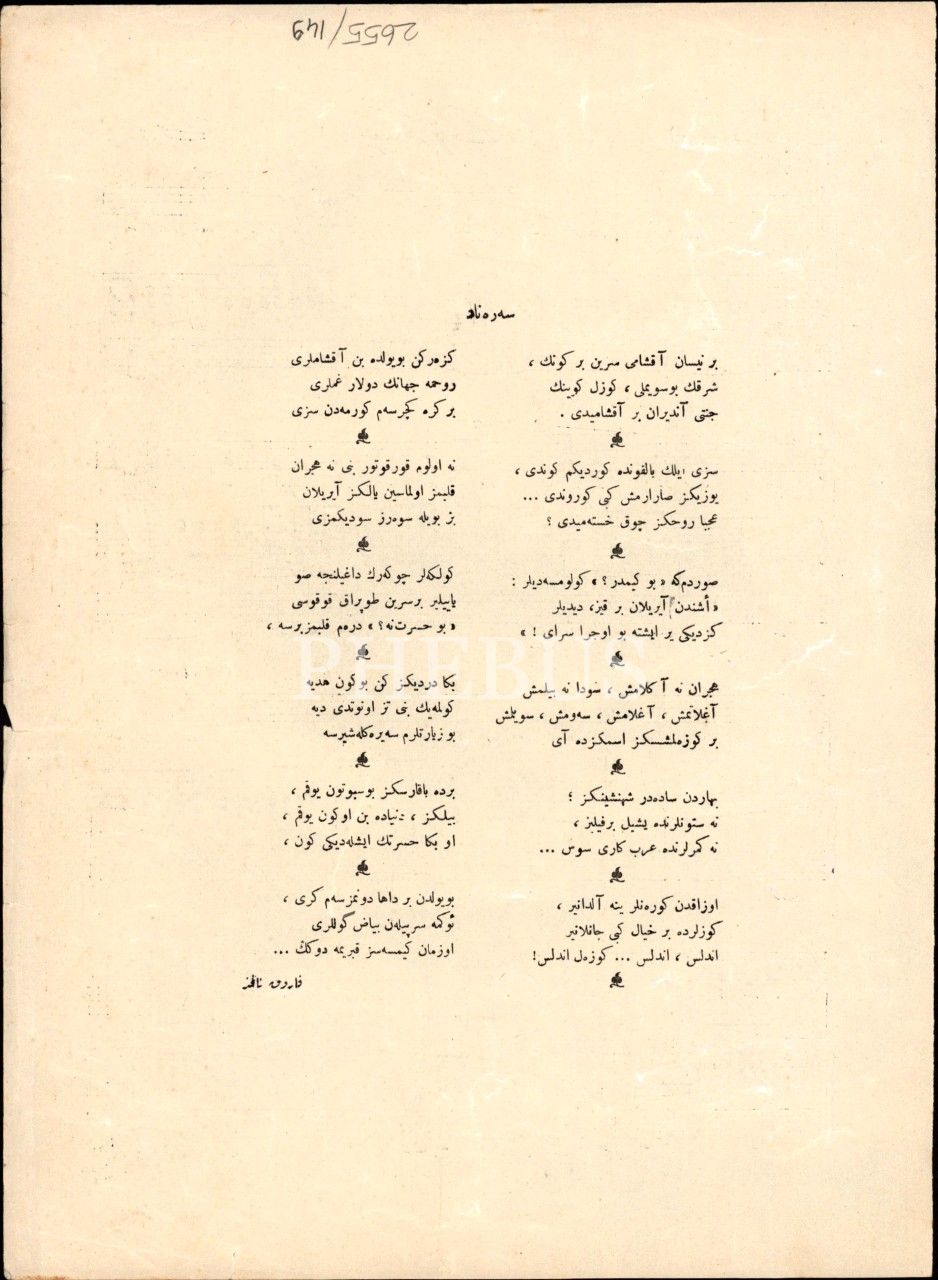 2655/149
سه‌ره‌ناد
بر نيسان آقشامى سرين بر كونك ،
شرقك بوسويملى ، كوزل كوينك
جنتى آنديران بر آقشاميدى .
سزى ايلك بالقونده كورديكم كوندى ،
يوزيكز صارارمش كبى كوروندى ...
عجبا روحكز چوق خسته‌ميدى ؟
صوردم‌كه « بو كيمدر ؟ » كولومسه‌ديلر :
« أشندن آيريلان بر قيز، ديديلر
كزديكى بر ايشته بو اوجرا سراى ! »
هجران نه آكلامش ، سودا نه بيلمش
آغلاتمش ، آغلامش ، سه‌ومش ، سويلمش
بر كوزه‌لمشسكز اسمكزده آى
بهاردن ساده‌در شهنشينكز ؛
نه ستونلرنده يشيل برفيليز ،
نه كمرلرنده عرب كارى سوس ...
اوزاقدن كوره‌نلر ينه آلدانير ،
كوزلرده بر خيال كبى جانلانير
اندلس ، اندلس ... كوزه‌ل اندلس!
كزه‌ركن بويولده بن آقشاملرى
روحمه جهانك دولار غملرى
بر كره كچرسه‌م كورمه‌دن سزى
نه اولوم قورقوتور بنى نه هجران
قلبمز اولماسين يالكز آيريلان
بز بويله سوه‌رز سوديكمزى
كولكه‌لر چوكه‌رك داغيلنجه صو
ياييلير برسرين طوپراق قوقوسى
« بو حسرت‌نه ؟ » دره‌م قلبمزبرسه ،
بكا درديكز كن بوكون هديه
كولمه‌يك بنى تز اونوتدى ديه
بو زيارتلرم سه‌يره‌كله‌شيرسه
برده باقارسكز بوسبوتون يوقم ،
بيلكز ، دنياده بن اوكون يوقم ،
او بكا حسرتك ايشله‌ديكى كون ،
بويولدن بر داها دونمزسه‌م كرى ،
ئوكمه سرپيله‌ن بياض گوللرى
اوزمان كيمسه‌سز قبريمه دوكك ...
فاروق نافذ
PHEBUS